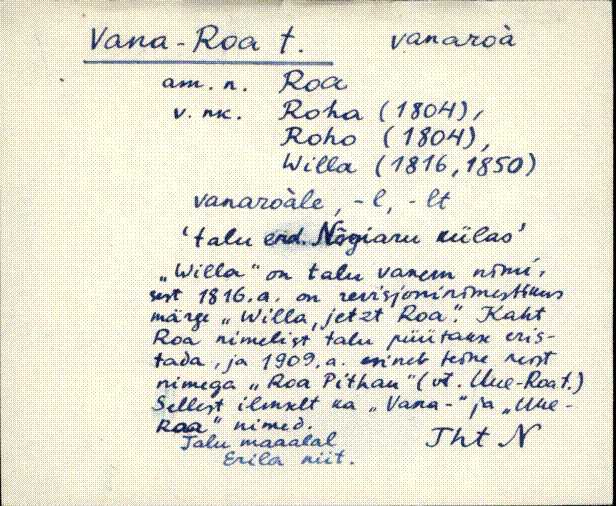 Vana-Roa t. vanaroà
am. n. Roa
v. nk. Roha (1804),
Roho (1804),
Willa (1816, 1850)
vanaroàle, -l, -lt
'talu end. Nõgiaru külas'
„Willa" on talu vanem nimi,
sest 1816. a. on revisjoninimestikus
märge „Willa, jetzt Roa". Kaht
Roa nimelist talu püütakse eris-
tada, ja 1909. a. esineb teine neist
nimega „Roa Pithau" (vt. Uue-Roa t.)
Sellest ilmselt ka „Vana-" ja „Uue-
Roa" nimed.
Talu maaalal
Erila niit.
Tht N